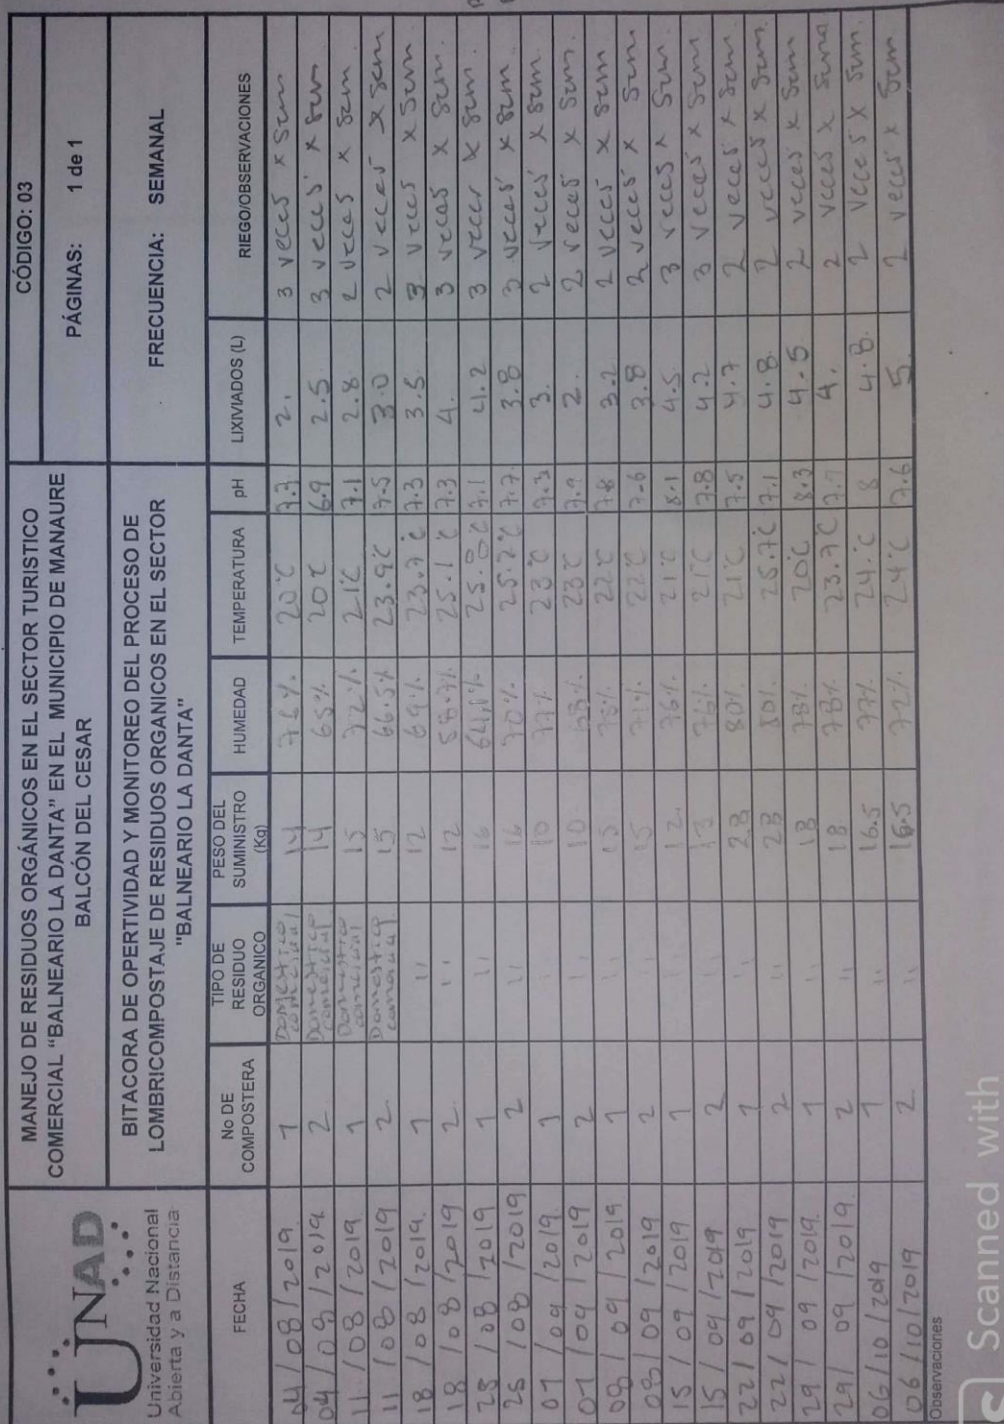 UNAD
Universidad Nacional
Abierta y a Distancia
MANEJO DE RESIDUOS ORGÁNICOS EN EL SECTOR TURISTICO
COMERCIAL “BALNEARIO LA DANTA” EN EL MUNICIPIO DE MANAURE
BALCÓN DEL CESAR
CÓDIGO: 03
PÁGINAS: 1 de 1
BITACORA DE OPERTIVIDAD Y MONITOREO DEL PROCESO DE
LOMBRICOMPOSTAJE DE RESIDUOS ORGANICOS EN EL SECTOR
"BALNEARIO LA DANTA"
FRECUENCIA: SEMANAL
FECHA No DE COMPOSTERA TIPO DE RESIDUO ORGANICO PESO DEL SUMINISTRO (Kg) HUMEDAD TEMPERATURA pH LIXIVIADOS (L) RIEGO/OBSERVACIONES
04/08/2019 1 Domestico comercial 14 76% 20°C 7.3 2. 3 veces x Sem
04/08/2019 2 Domestico comercial 14 65% 20°C 6.9 2.5 3 veces x Sem
11/08/2019 1 Domestico comercial 15 72% 21°C 7.1 2.8 2 veces x Sem
11/08/2019 2 Domestico comercial 15 66.5% 23.9°C 7.5 3.0 2 veces x Sem
18/08/2019 1 '' 12 69% 23.7°C 7.3 3.5 3 veces x Sem
18/08/2019 2 '' 12 58.7% 25.1°C 7.3 4. 3 veces x Sem
25/08/2019 1 '' 16 25.8°C 7.1 4.2 3 veces x Sem
25/08/2019 2 '' 16 70% 25.2°C 7.7 3.8 3 veces x Sem
01/09/2019 1 10 77% 23°C 7.3 3. 2 veces x Sem
01/09/2019 2 '' 10 68% 23°C 7.9 2. 2 veces x Sem
08/09/2019 1 '' 15 22°C 7.8 3.2 2 veces x Sem
08/09/2019 2 '' 15 22°C 7.6 3.8 2 veces x Sem
15/09/2019 1 '' 12 76% 21°C 8.1 4.5 3 veces x Sem
15/09/2019 2 '' 12 76% 21°C 7.8 4.2 3 veces x Sem
22/09/2019 1 '' 28 80% 21°C 7.5 4.7 2 veces x Sem
22/09/2019 2 '' 28 80% 25.7°C 7.1 4.8 2 veces x Sem
29/09/2019 1 '' 18 78% 20°C 8.3 4.5 2 veces x Sem
29/09/2019 2 '' 18 78% 23.7°C 7.9 4. 2 veces x Sema
06/10/2019 1 '' 16.5 77% 24.°C 8 4.8. 2 veces x Sem
06/10/2019 2 '' 16.5 72% 24°C 7.6 5. 2 veces x Sem
Observaciones
Scanned with